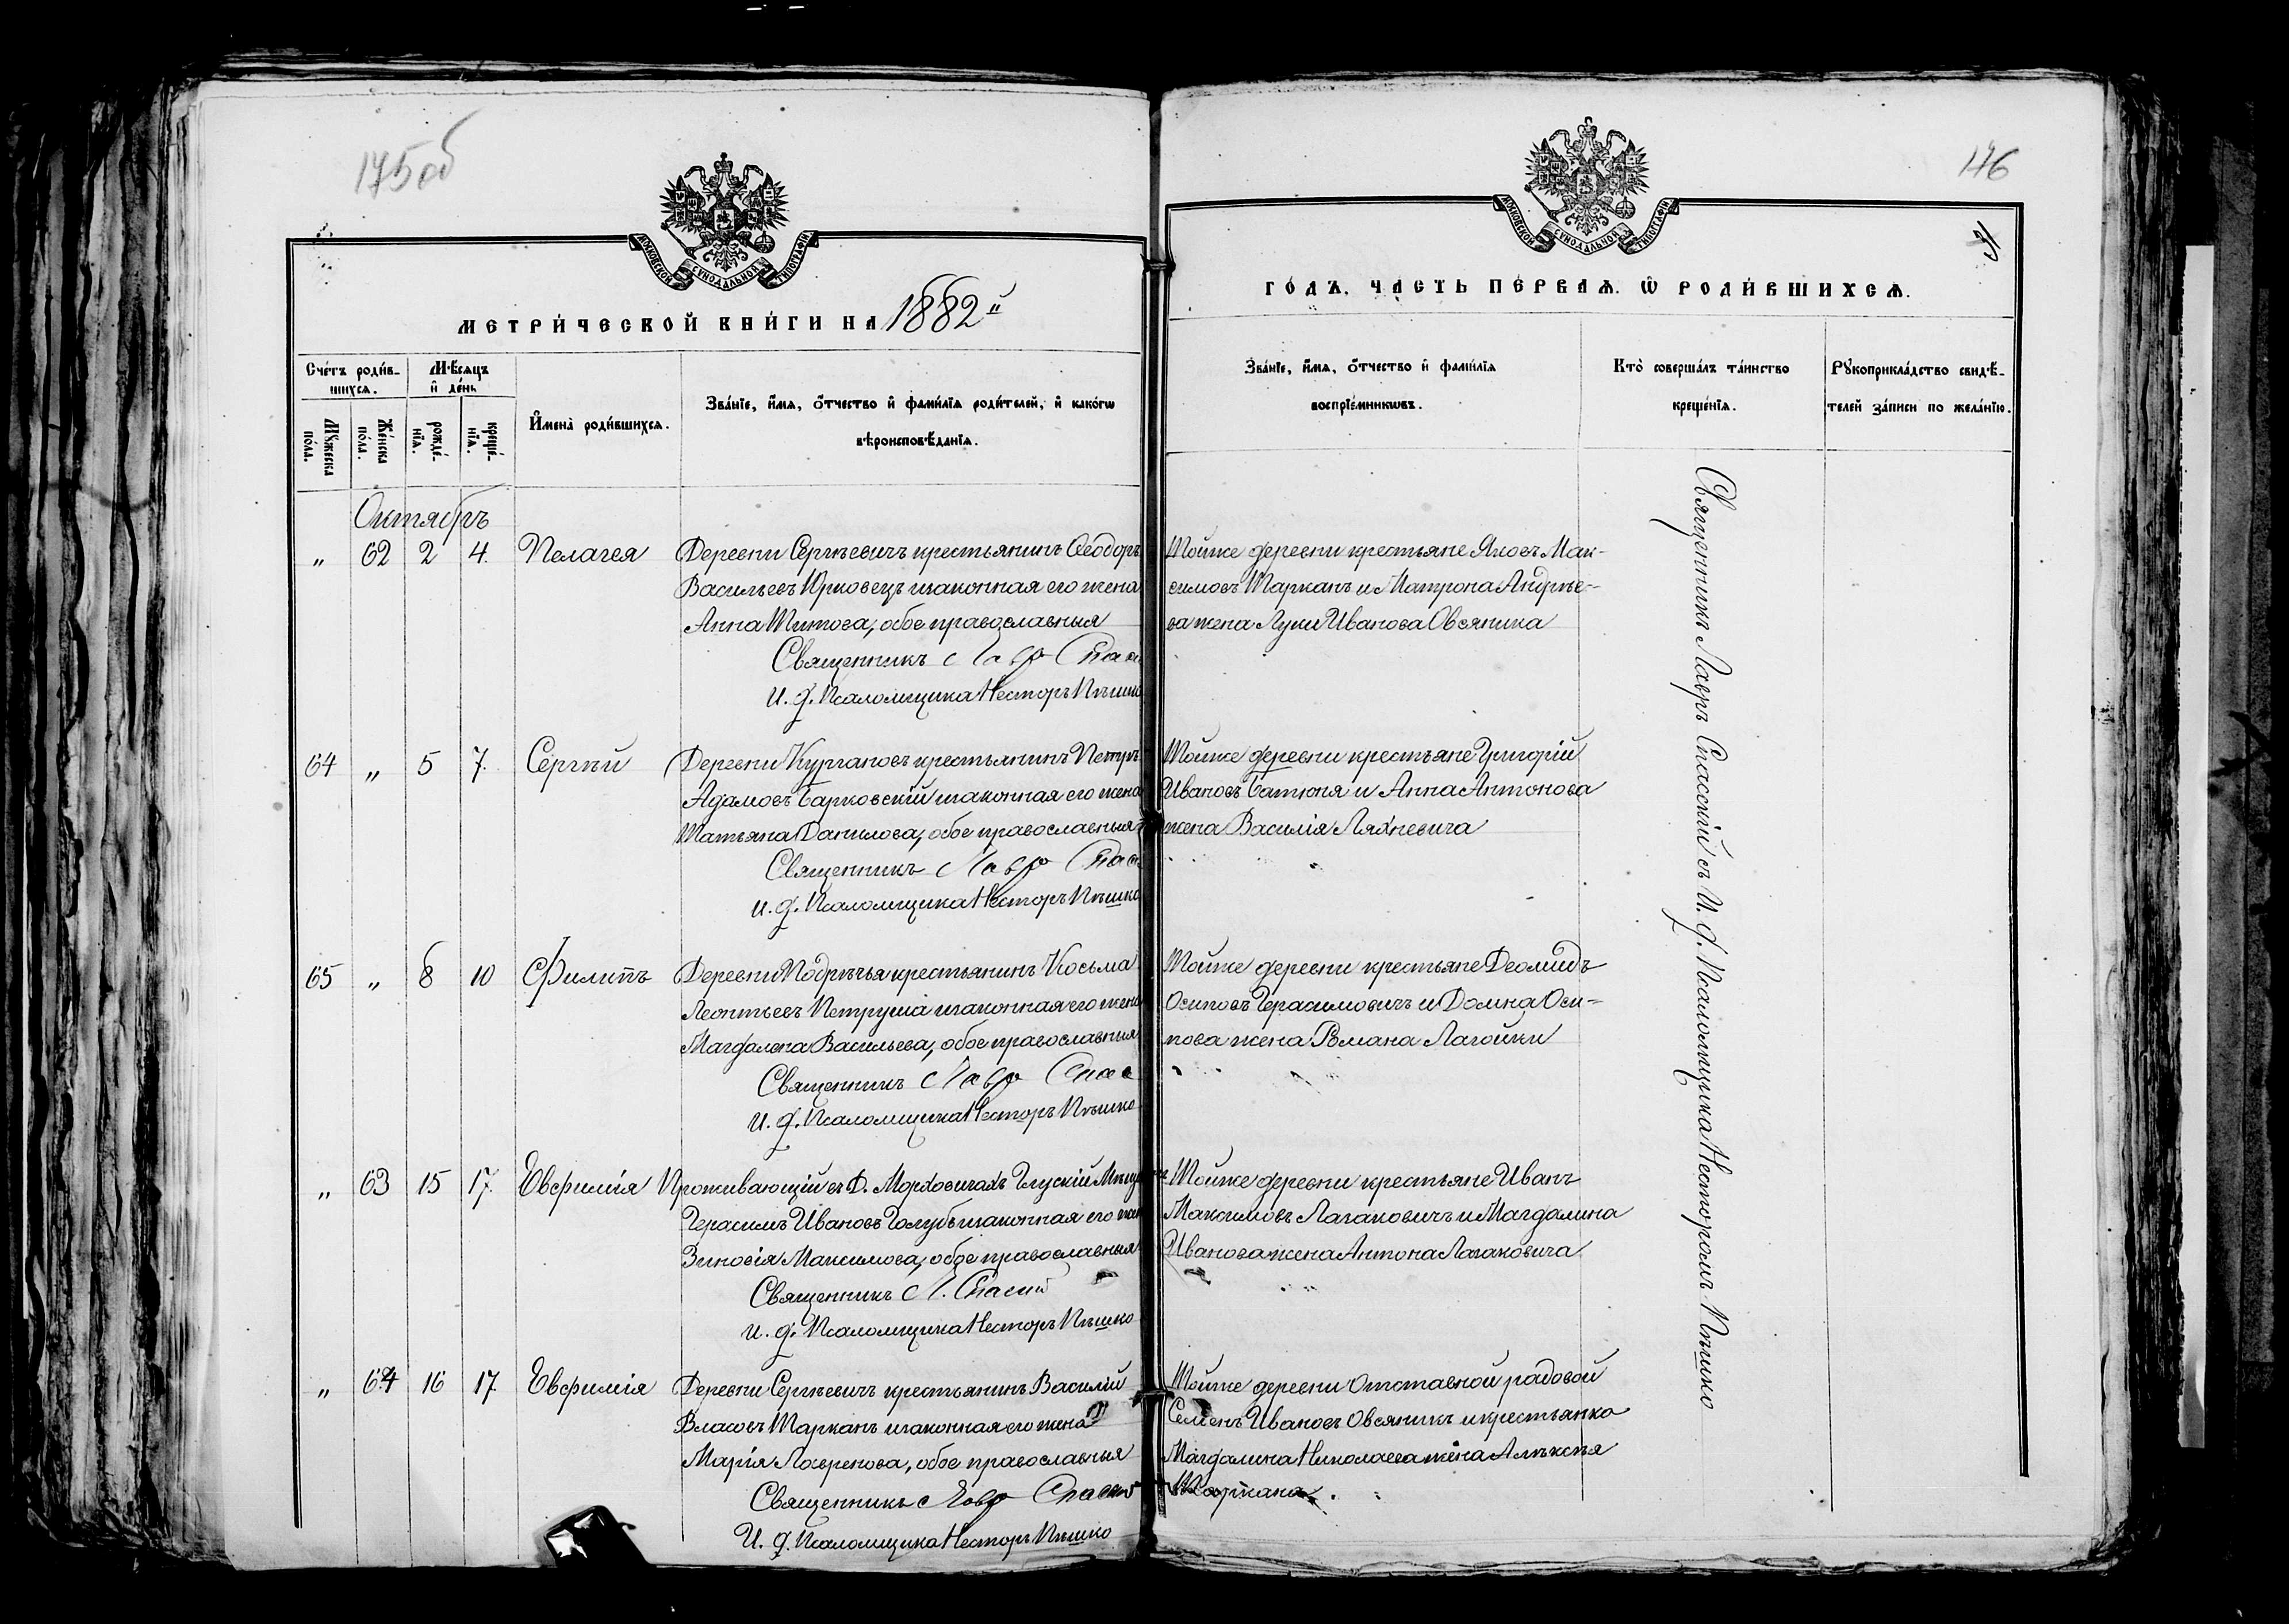 175 об
МОСКОВСКОЙ СУНОДАЛЬНОЙ ТИПОГРАФІИ
МЕТРИ́ЧЕСКОЙ КНИ́ГИ НА 1882й
Сче́тъ роди́в-
шихся.
Мѣ́сяцъ
и҆ де́нь
Му́жеска
по́ла.
Же́нска
по́ла.
рожде́-
нїя.
креще́-
нїя.
И҆мена̀ роди́вшихся.
Зва́нїе, и҆́мя, ѻ҆́тчество и҆ фами́лїя роди́телей, и҆ како́гѡ
вѣроисповѣ́данїя.
Октябрь
„ 62 2 4. Пелагея
Деревни Сергѣевичъ крестьянинъ Ѳеодоръ
Васильевъ Юрковецъ изаконная его жена
Анна Титова, обое православныя
Священникъ Лавр Спас
И. д. Псаломщика Несторъ Пѣшко
64 „ 5 7. Сергѣй
Деревни Кургановъ крестьянинъ Петръ
Адамовъ Барковскій изаконная его жена
Татьяна Данилова, обое православныя
Священникъ Лавр Спас
И. д. Псаломщика Несторъ Пѣшко
65 „ 8 10 Филипъ
Деревни Подрѣчья крестьянинъ Косьма
Леонтьевъ Петруша изаконная его жена
Магдалена Васильева, обое православныя
Священникъ Лавр Спас
И. д. Псаломщика Несторъ Пѣшко
„ 63 15 17. Евфимія
Проживающій въ Д. Морховичахъ Глускій Мѣщ
Герасимъ Ивановъ Голубъ изаконная его жен
Зиновія Максимова, обое православныя
Священникъ Л. Спаскій
И. д. Псаломщика Несторъ Пѣшко
„ 64 16 17. Евфимія
Деревни Сергѣевичъ крестьянинъ Василій
Власовъ Тарканъ изаконная его жена
Марія Лавренова, обое православныя
Священникъ Лавр Спаскій
И. д. Псаломщика Несторъ Пѣшко
176
МОСКОВСКОЙ СУНОДАЛЬНОЙ ТИПОГРАФІИ
ГО́ДЪ. ЧА́СТЬ ПЕ́РВАЯ. Ѿ РОДИ́ВШИХСЯ.
Зва́нїе, и҆́мя, ѻ҆́тчество и҆ фами́лїя
воспрїе́мникѡвъ.
Кто̀ соверша́лъ та́инство
креще́нїя.
Рꙋкоприкла́дство свидѣ́-
телей за́писи по жела́нїю.
Тойже деревни крестьяне Яковъ Мак-
симовъ Тарканъ и Матрона Андрѣе-
ва жена Луки Иванова Овсяника
Тойже деревни крестьяне Григорій
Ивановъ Батюня и Анна Антонова
жена Василія Ляхневича
Тойже деревни крестьяне Деомидъ
Осиповъ Герасимовичъ и Домна Оси-
пова жена Романа Лагойки
Тойже деревни крестьяне Иванъ
Максимовъ Лагаковичъ и Магдалина
Иванова жена Антона Лагаковича
Тойже деревни Отставной рядовой
Семенъ Ивановъ Овсяникъ и крестьянка
Магдалина Николаева жена Алѣксѣя
Таркана.
Священникъ Лавръ Спасскій съ И. д. Псаломщика Несторомъ Пѣшко